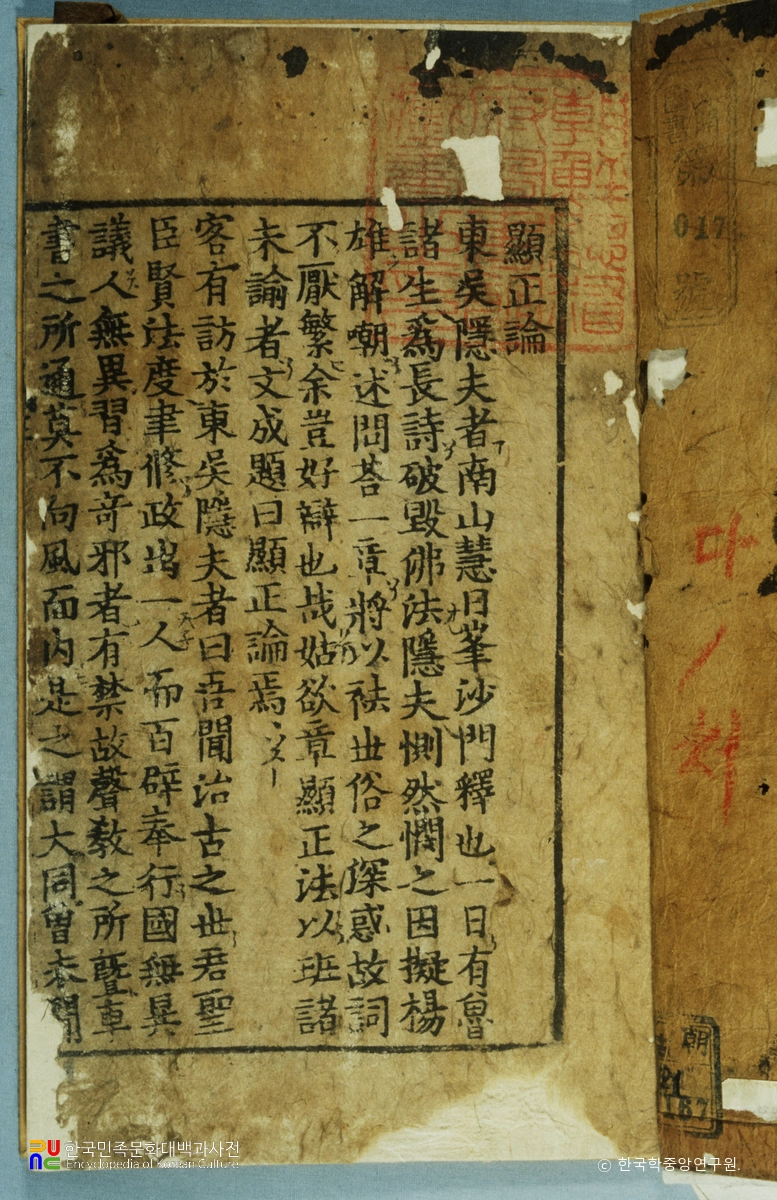 顯正論
東吳隱夫者南山慧日峯沙門釋也一日有魯
諸生爲長詩破毀佛法隱夫惻然憫之因擬楊
雄解嘲述問荅一章將以祛世俗之深惑故詞
不厭繁余豈好辯也哉姑欲章顯正法以班諸
未諭者文成題曰顯正論焉
客有訪於東吳隱夫者曰吾聞治古之世君聖
臣賢法度聿修政出一人而百辟奉行國無異
議人無異習爲奇邪者有禁故聲敎之所曁車
書之所通莫不向風而內是之謂大同曾未聞
第
017
號
朝
21
187
한국민족문화대백과사전
Encyclopedia of Korean Culture
ⓒ 한국학중앙연구원